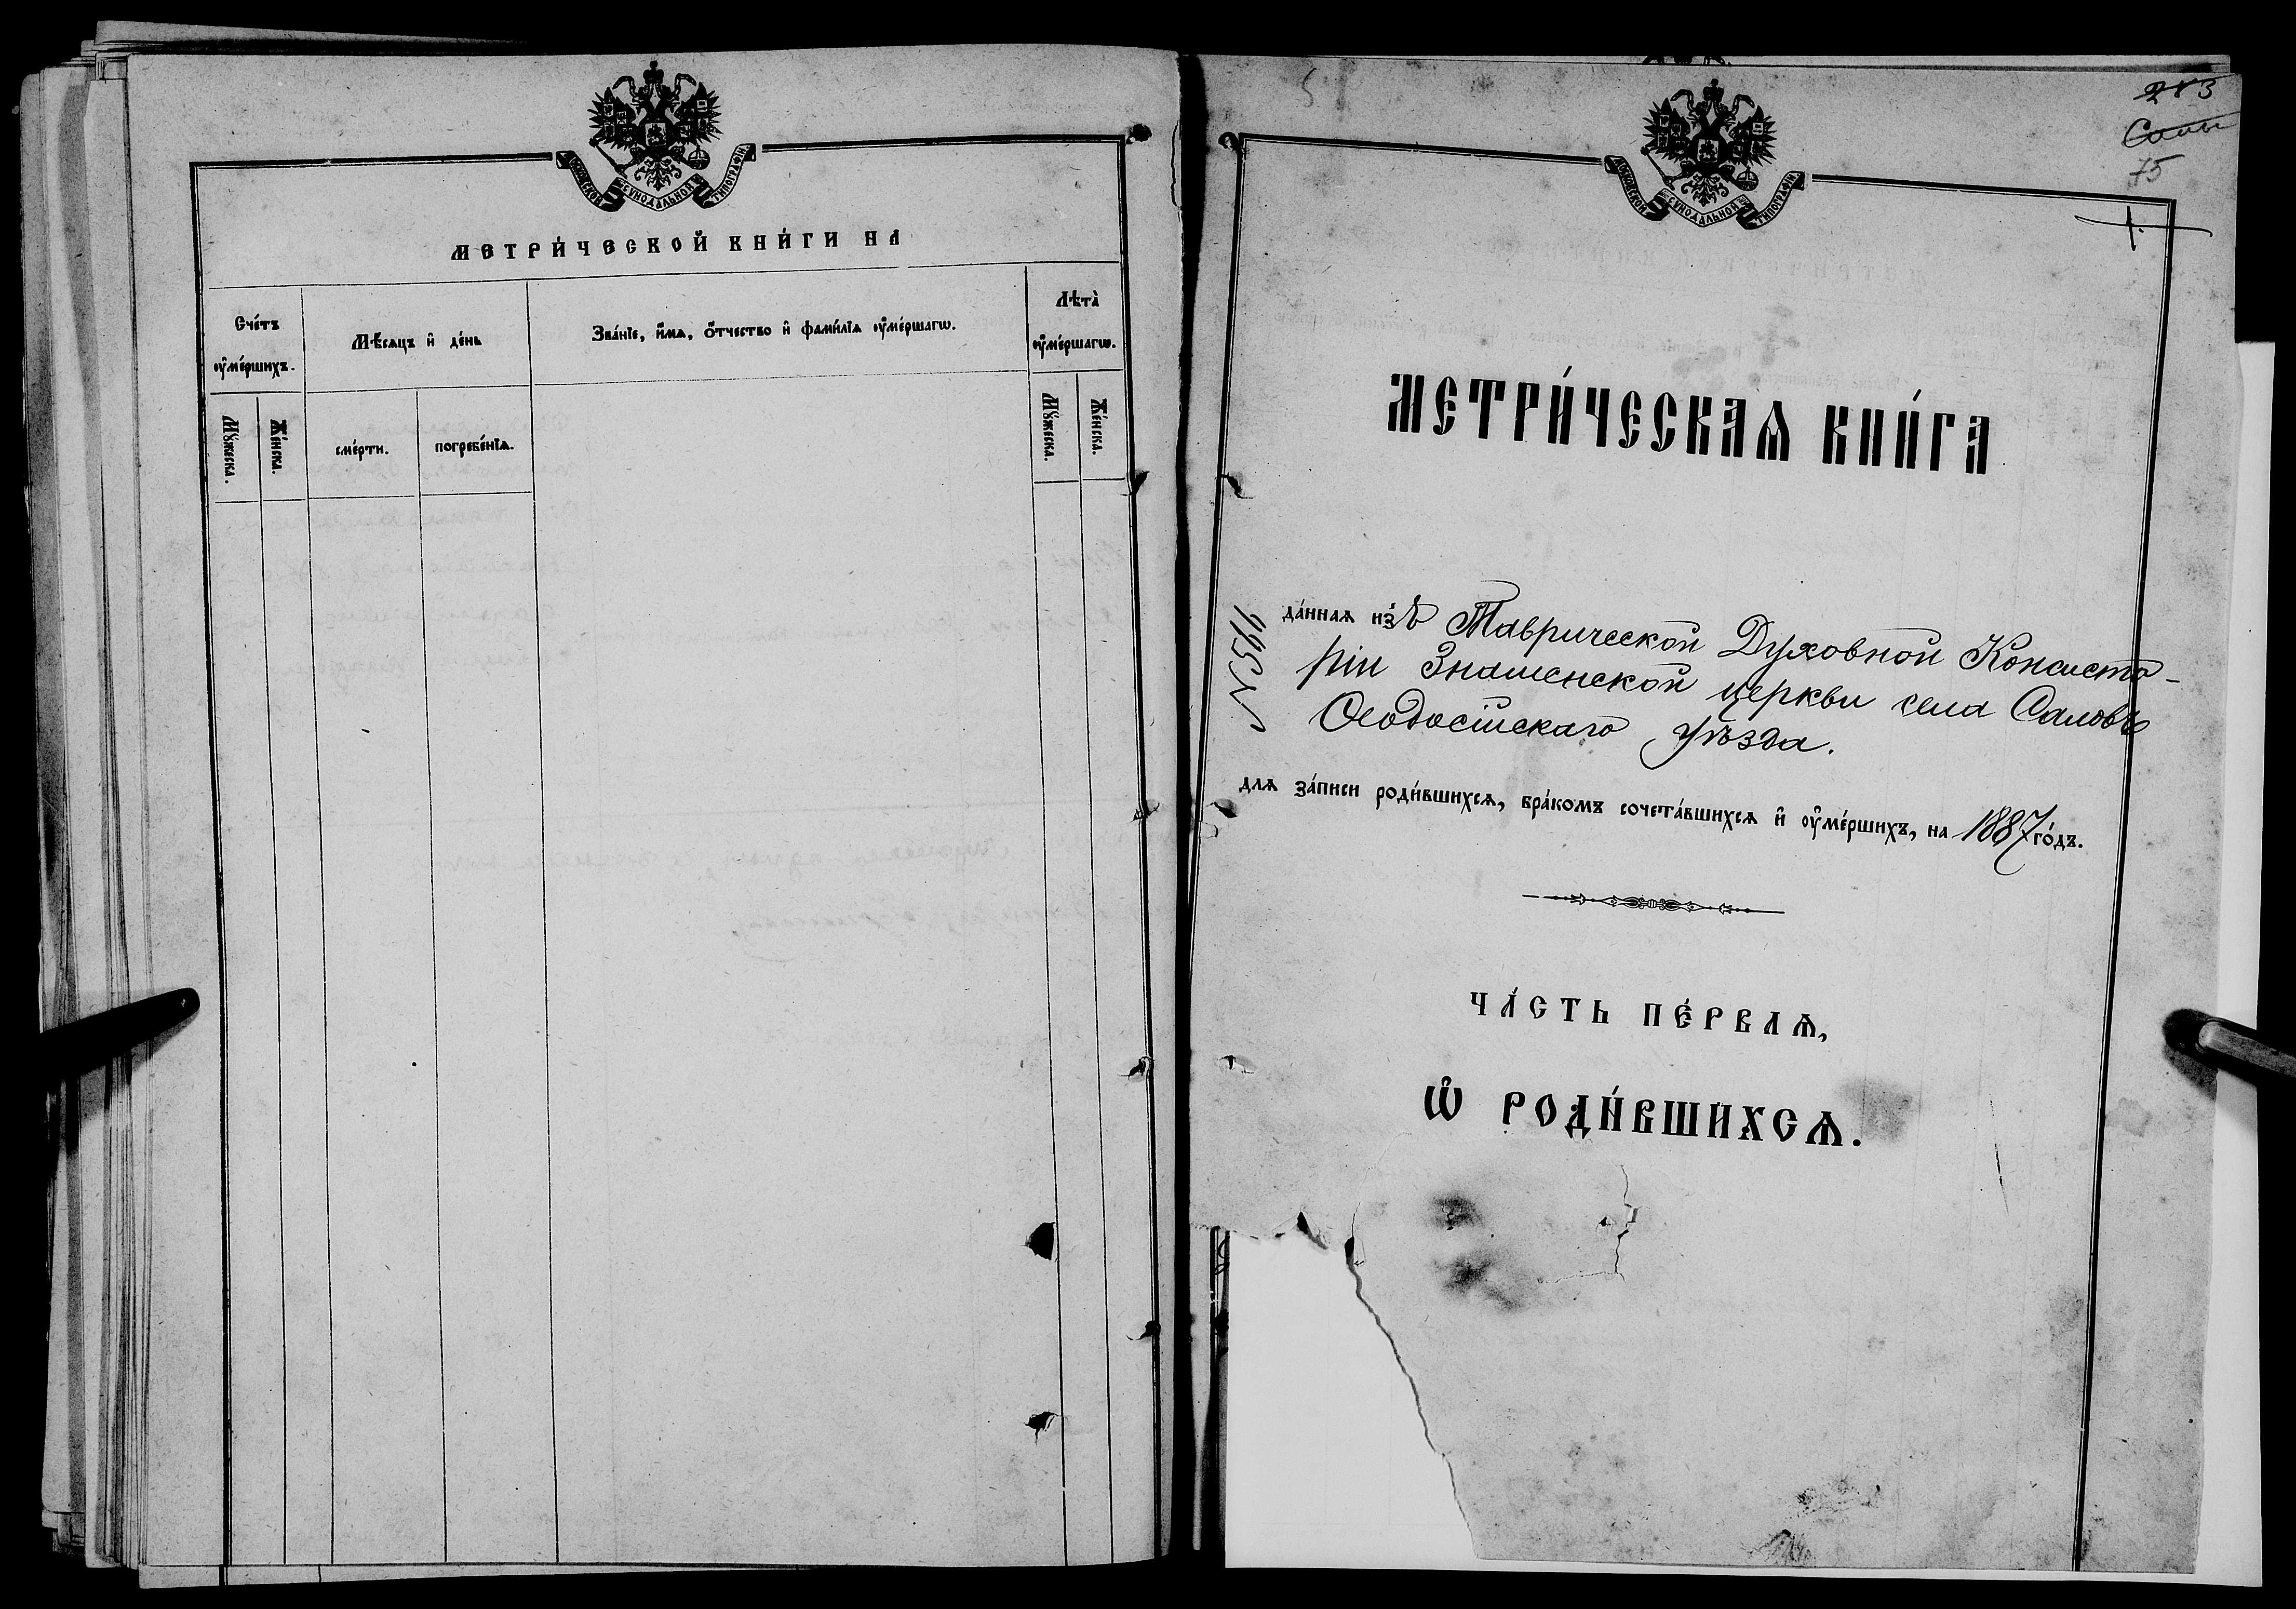 МОСКОВСКОЙ СѴНОДАЛЬНОЙ ТИПОГРАФІИ
МЕТРИ́ЧЕСКОЙ КНИ́ГИ НА
Сче́тъ ᲂу҆ме́ршихъ.
Мѣ́сяцъ и҆ де́нь
Зва́нїе, и҆́мѧ, ѻ҆́тчество и҆ фами́лїѧ ᲂу҆ме́ршагѡ.
Лѣта̀ ᲂу҆ме́ршагѡ.
Мꙋ́жеска.
Же́нска.
сме́рти.
погребе́нїѧ.
Мꙋ́жеска.
Же́нска.
283
Салы
75
МОСКОВСКОЙ СѴНОДАЛЬНОЙ ТИПОГРАФІИ
1.
МЕТРИ́ЧЕСКАѦ КНИ́ГА
N 3544
да́ннаѧ и҆зъ Таврической Духовной Консисто-
ріи Знаменской церкви села Саловъ
Ѳеодосійскаго уѣзда.
длѧ за́писи роди́вшихсѧ, бра́комъ сочета́вшихсѧ и҆ ᲂу҆ме́ршихъ, на 1887 го́дъ.
ЧА́СТЬ ПЕ́РВАѦ,
Ѡ҆ РОДИ́ВШИХСѦ.